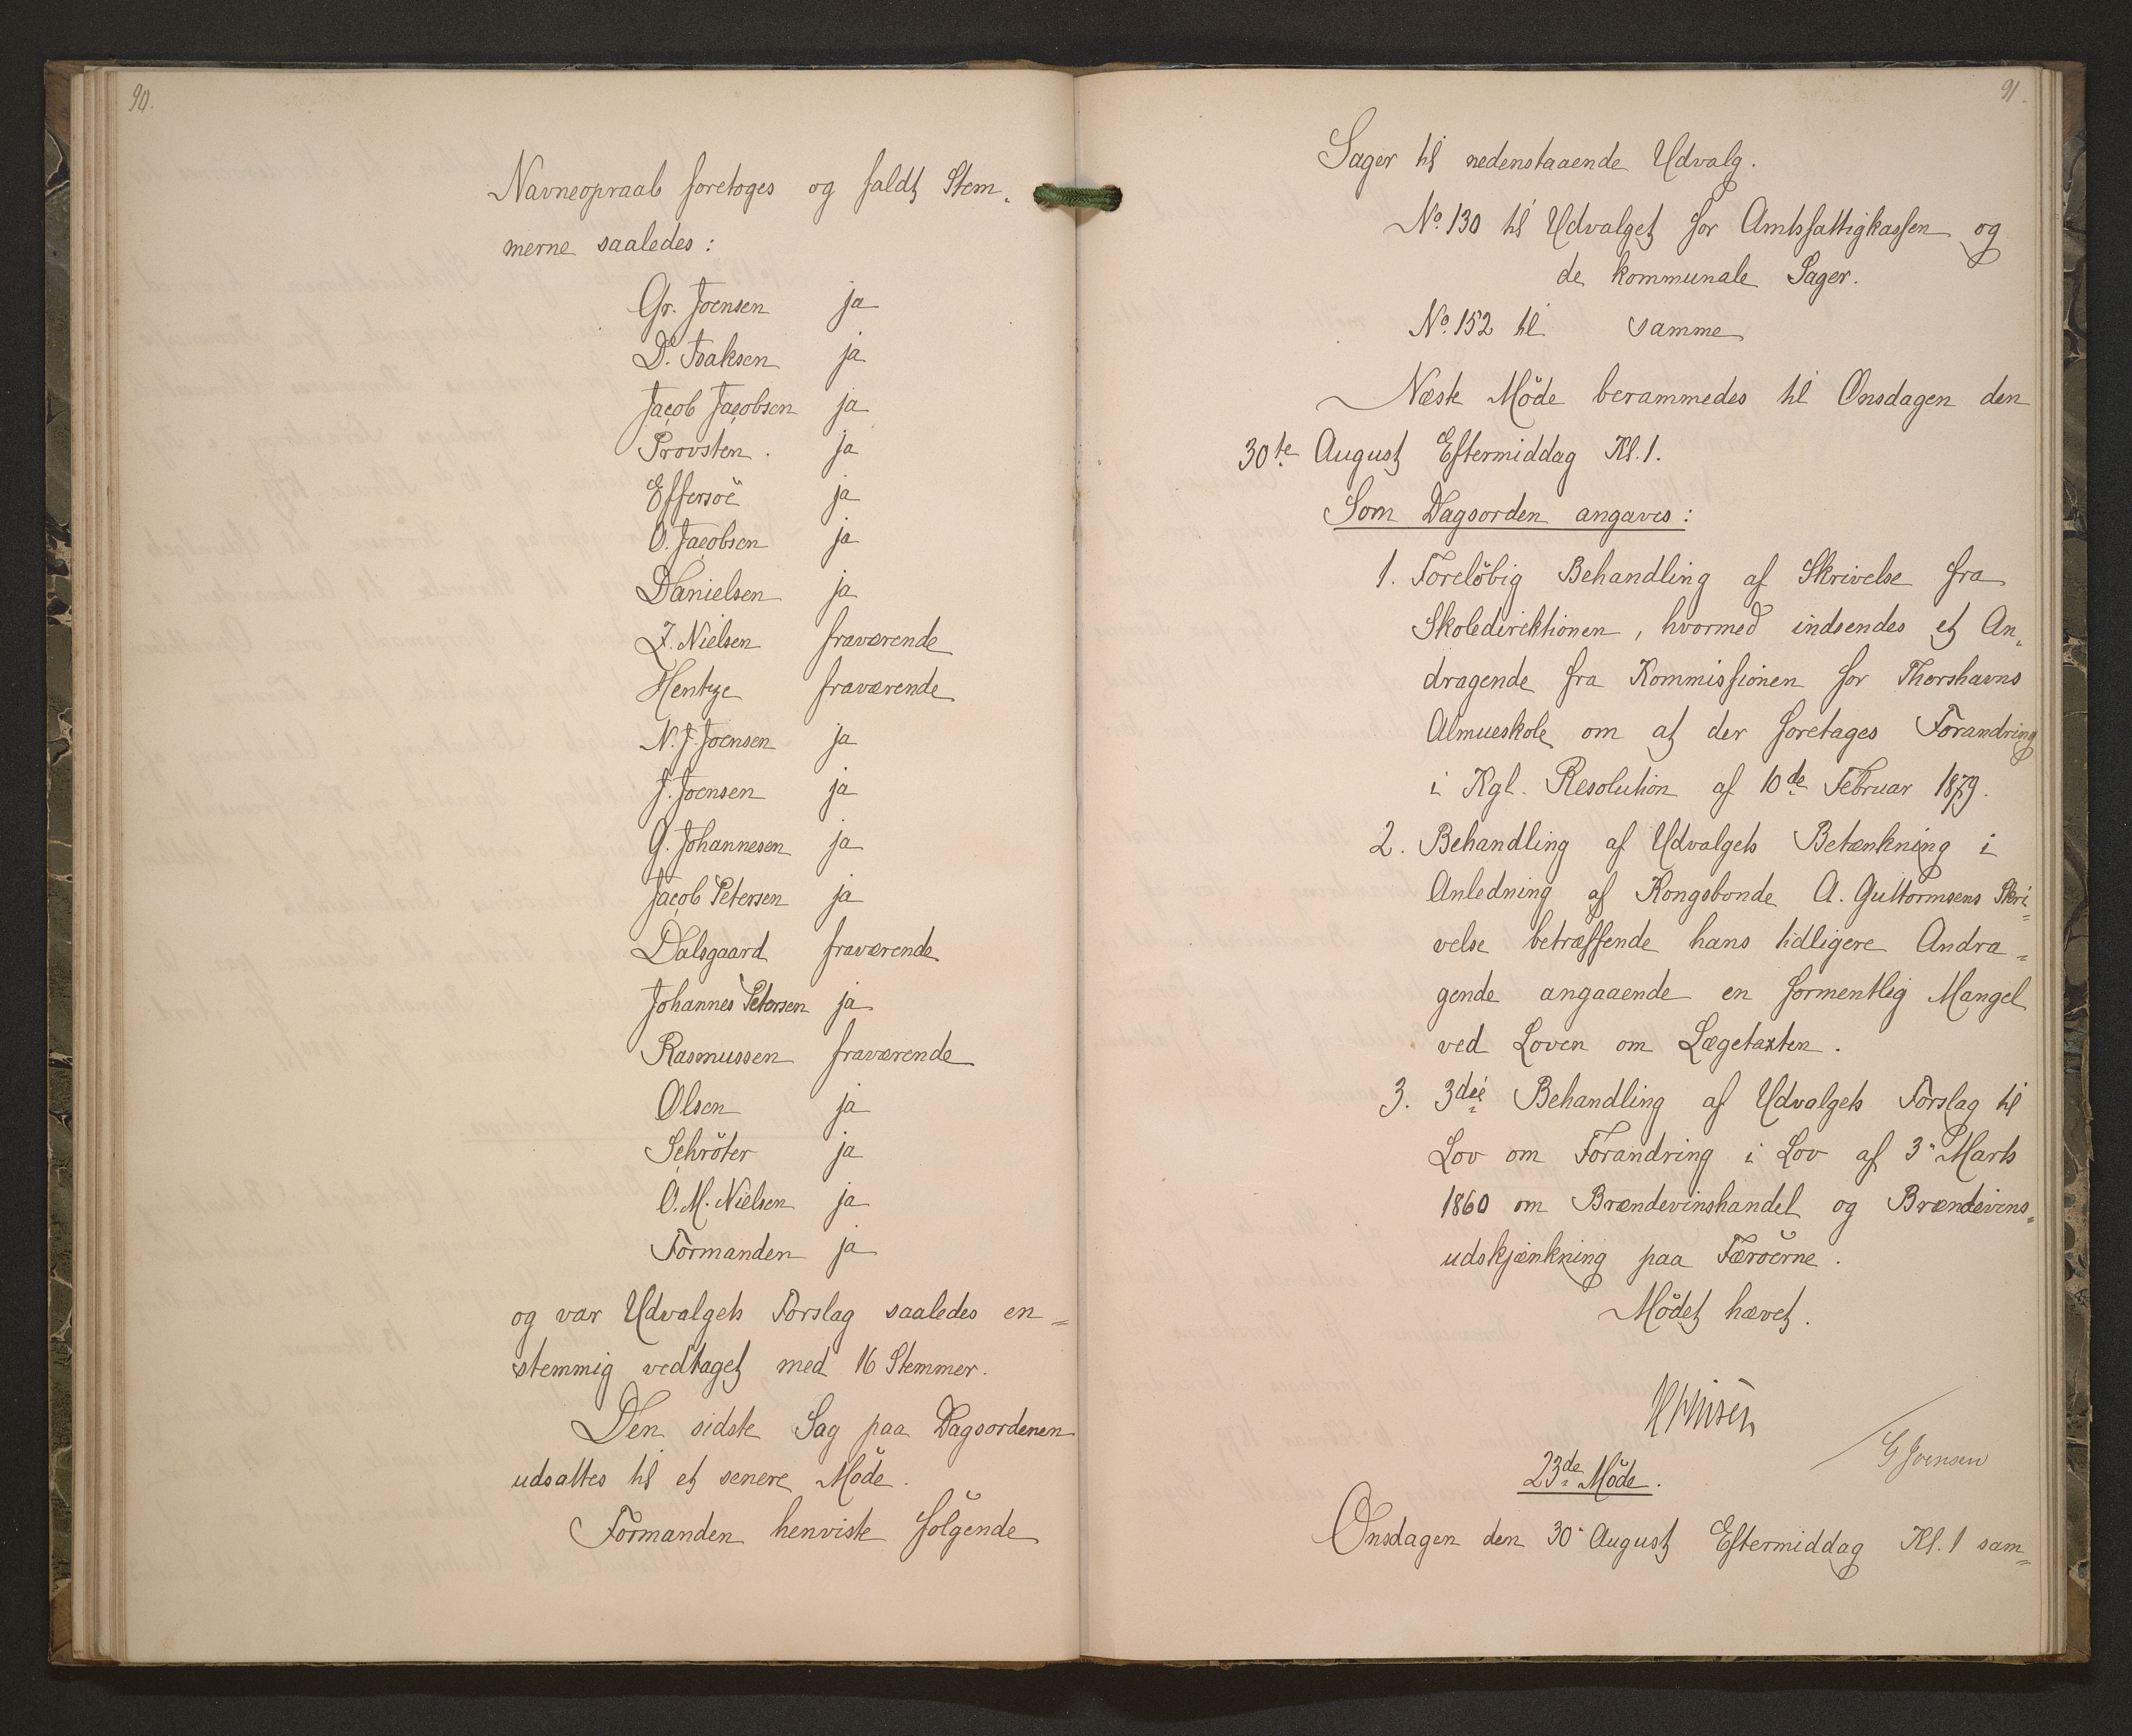 90.
Navneopraab foretoges og faldt Stem„
merne saaledes:
Gr. Joensen ja
D. Isaksen ja
Jacob Jacobsen ja
Provsten. ja
Effersöe ja
O. Jacobsen ja
Danielsen ja
J. Nielsen fraværende
Hentze fraværende
N. J. Joensen ja
J. Joensen ja
G. Johannesen ja
Jacob Petersen ja
Dalsgaard fraværende
Johannes Petersen ja
Rasmussen fraværende
Olsen ja
Schröter ja
O. M. Nielsen ja
Formanden ja
og var Udvalgets Forslag saaledes en=
stemmig vedtaget med 16 Stemmer.
Den sidste Sag paa Dagsordenen
udsattes til et senere Möde.
Formanden henviste fölgende
91.
Sager til nedenstaaende Udvalg.
No. 130 til Udvalget for Amtsfattigkassen og
de kommunale Sager.
No. 152 til samme
Næste Möde berammedes til Onsdagen den
30te August Eftermiddag Kl. 1.
Som Dagsorden angaves:
1. Forelöbig Behandling af Skrivelse fra
Skoledirektionen, hvormed indsendes et An„
dragende fra Kommissionen for Thorshavns
Almueskole om at der foretages Forandring
i Kgl. Resolution af 10de Februar 1879.
2. Behandling af Udvalgets Betænkning i
Anledning af Kongsbonde A. Guttormsens Skri=
velse betræffende hans tidligere Andra=
gende angaaende en formentlig Mangel
ved Loven om Lægetaxten.
3. 3die Behandling af Udvalgets Forslag til
Lov om Forandring i Lov af 3" Marts
1860 om Brændevinshandel og Brændevins=
udskjænkning paa Færöerne.
Mödet hævet.
G Joensen
23de Möde.
Onsdagen den 30" August Eftermiddag Kl. 1 sam=